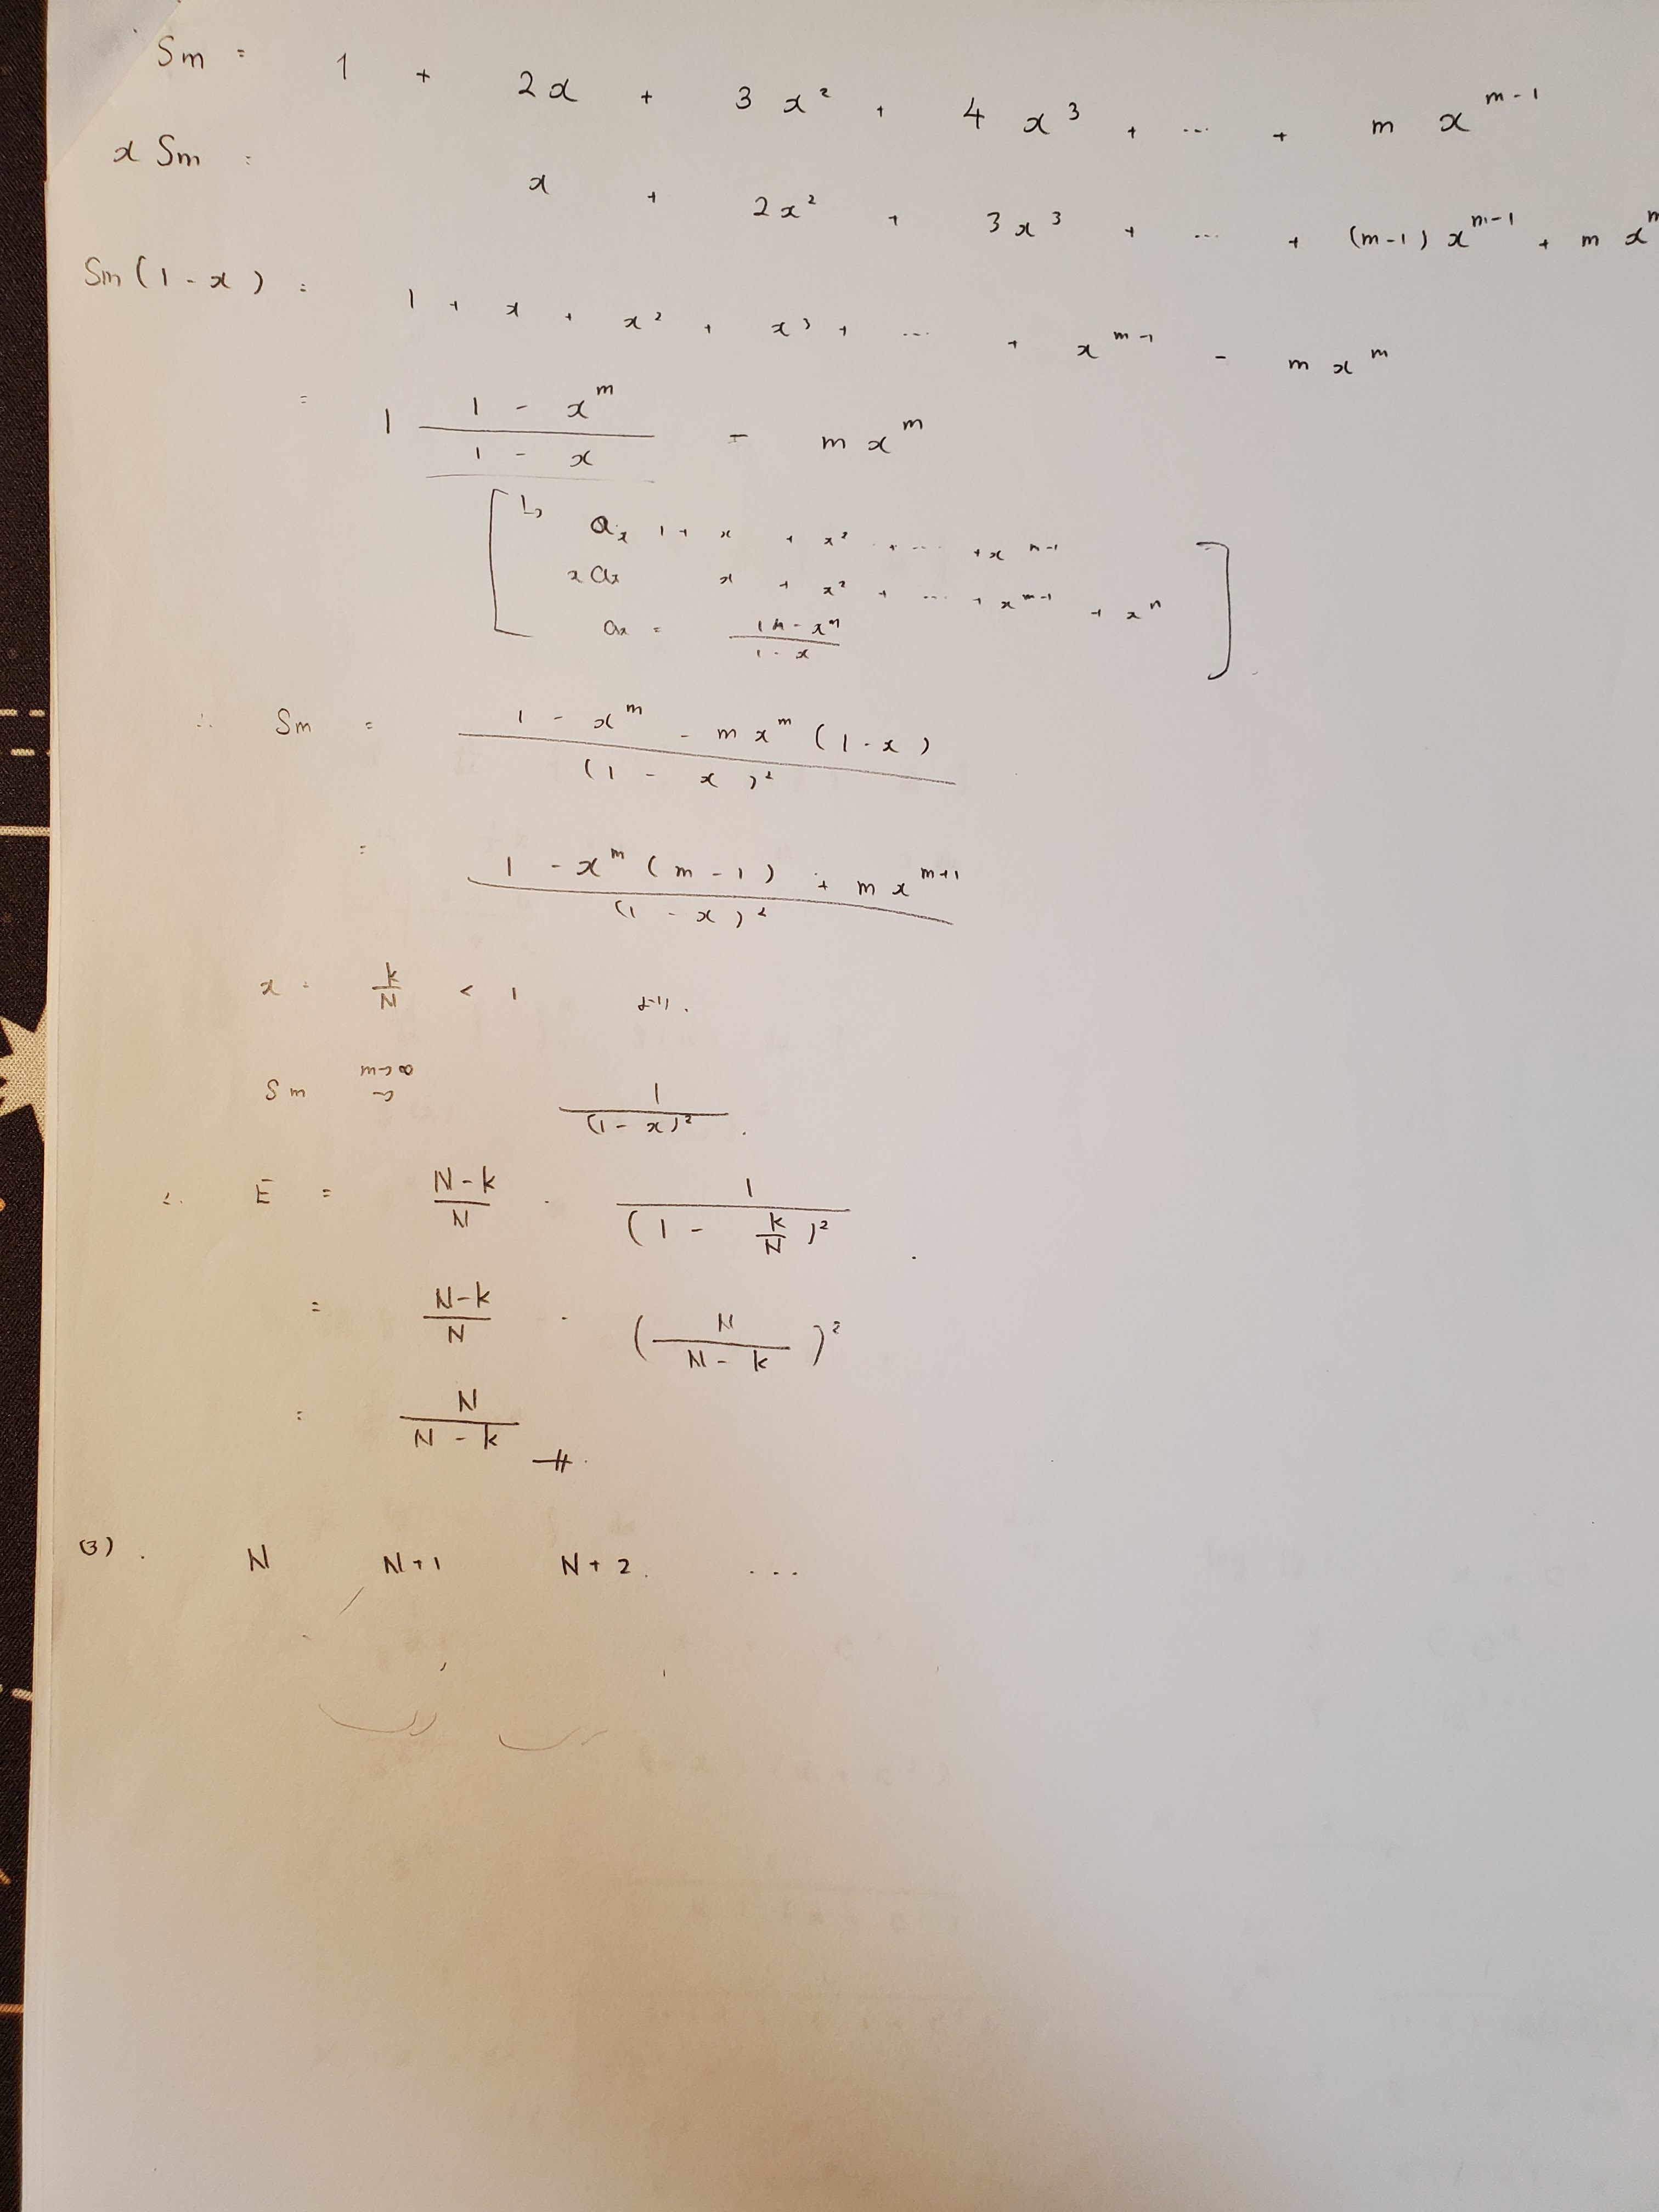 Sm = 1 + 2x + 3x² + 4x³ + ... + m x^{m-1}
x Sm = x + 2x² + 3x³ + ... + (m-1) x^{m-1} + m x^m
Sm (1-x) = 1 + x + x² + x³ + ... + x^{m-1} - m x^m
= 1 \frac{1 - x^m}{1 - x} - m x^m
[ ↳ a_x 1 + x + x² + ... + x^{n-1}
x a_x x + x² + ... + x^{m-1} + x^n ]
a_x = \frac{1 - x^m}{1 - x}
∴ Sm = \frac{1 - x^m - m x^m (1-x)}{(1 - x)²}
= \frac{1 - x^m (m-1) + m x^{m+1}}{(1-x)²}
x = \frac{k}{N} < 1 より.
Sm \overset{m→∞}{→} \frac{1}{(1-x)²}.
∴ E = \frac{N-k}{N} · \frac{1}{(1 - \frac{k}{N})²}.
= \frac{N-k}{N} · (\frac{N}{N-k})²
= \frac{N}{N-k} #.
(3). N N+1 N+2. ...